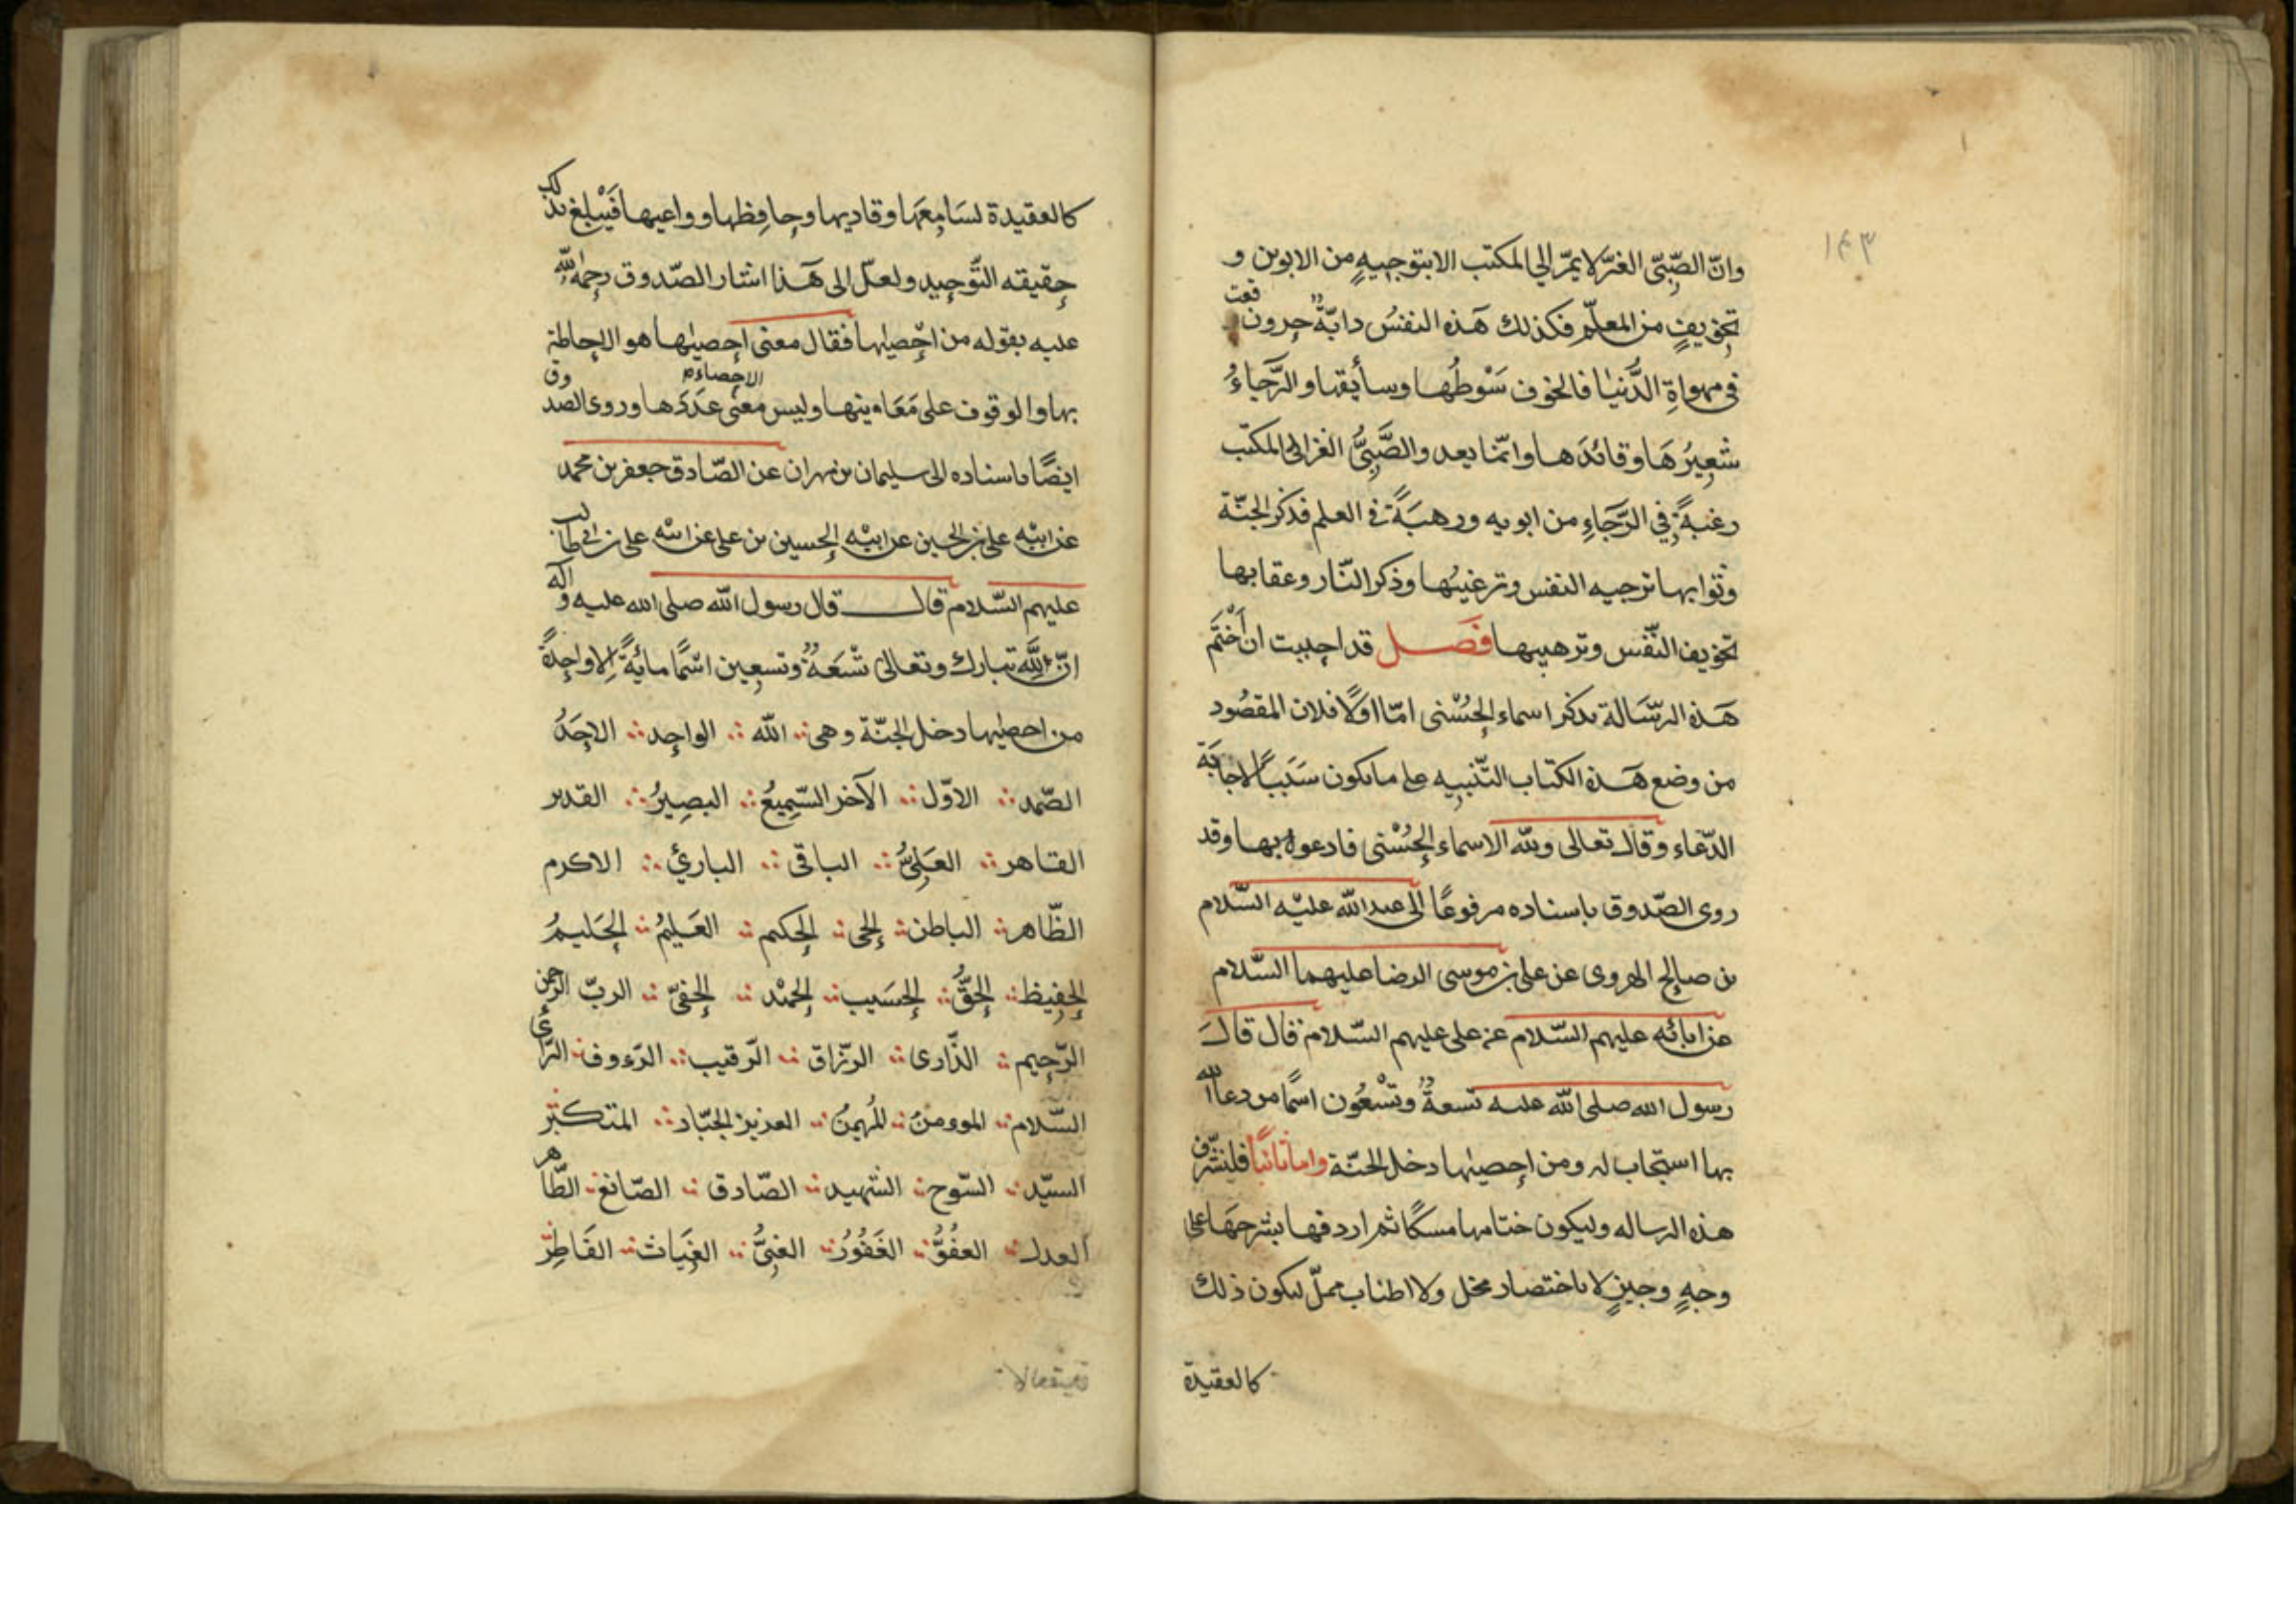 ١٤٣
وانّ الصّبيّ الغرّ لا يمرّ الي المكتب الا بتوجيهٍ من الابوين و
تخويفٍ من المعلّم فكذلك هَذه النفسُ دابّةٌ حرون وقعت
في مهواةِ الدُّنيا فالخوف سَوْطُها وسائقها والرَّجاءُ
شعِيرُهَا وقائدَها وانّما يعد والصَّبِيُّ الغر الى المكتب
رغبةً في الرَّجَاءِ من ابويه ورهبَةً في العلم فذكر الجنّة
وثوابها ترجيه النفس وترغيبُها وذكر النّار وعقابها
تخويف النّفس وترهيبها فَصَل قد احببت ان أخْتَم
هَذه الرّسَالة بذكر اسماء الحُسْنى امّا اوّلًا فلان المقصُود
من وضع هَذه الكتاب التّنبيه على ما يكون سَبَبًا لاجابَة
الدّعاء وقال تعالى ولله الاسماء الحُسْنى فادعوه بها وقد
روى الصّدوق باسناده مرفوعًا الى عبد الله عليْه السّلام
بن صالح الهروى عن على بن موسى الرضا عليهما السّلام
عن ابائه عليهم السّلام عن على عليهم السّلام قال قالَ
رسول الله صلى الله عليه تسعةٌ وتسْعُون اسمًا من دعا الله
بها استجاب له ومن احصيٰها دخل الجنّة واما ثانيًا فلنشرّف
هذه الرساله وليكون ختامها مسكًا ثم اردفها بشرحهَا على
وجهٍ وجيزٍ لا باختصار مخل ولا اطناب مملّ ليكون ذلك
كالعقيدة
كالعقيدة لسَامِعهَا وقاريها وحافِظها وواعيها فَيْبلغ بذلك
حقيقه التَّوحيد ولعلّ الى هَذا اشار الصّدوق رحمة الله
عليه بقوله من احْصيٰها فقال معنى احصيٰها هو الاحاطة
بها والوقوف على مَعَانيها وليس معنى الاحصاء عَدَدَها وروى الصدوق
ايضًا باسناده الى سليمان بن مهران عن الصّادق جعفر بن محمد
عن ابيْه على بن الحسين عن ابيْه الحسين بن على عن ابيه على بن ابي طالب
عليهم السّلام قال قال رسول الله صلى الله عليه وآله
انّ لله تبارك وتعالى تسْعَةٌ وتسعِين اسْمًا مائةً الا واحِدةً
من احصيٰها دخل الجنّة وهى الله الواحِد الاحَدُ
الصّمد الاوّل الآخر السّمِيعُ البصِيرُ القدير
القاهر العَلِيُّ الباقى الباريُ الاكرم
الظّاهر الباطن الحى الحكيم العَليُم الحَليمُ
الحفِيظ الحَقُّ الحسَيب الحمْد الحفىّ الربّ الرحمن
الرّحيم الذّارى الرّزاق الرّقيب الرّءوف الرّائي
السّلام المومن المُهيمنُ العزيز الجبّار المتكبّر
السيّد السّوح الشهيد الصّادق الصّانع الطّاهر
العدل العفُوُّ الغَفُوُر الغنِيُّ الغِيَاث الفَاطِرُ